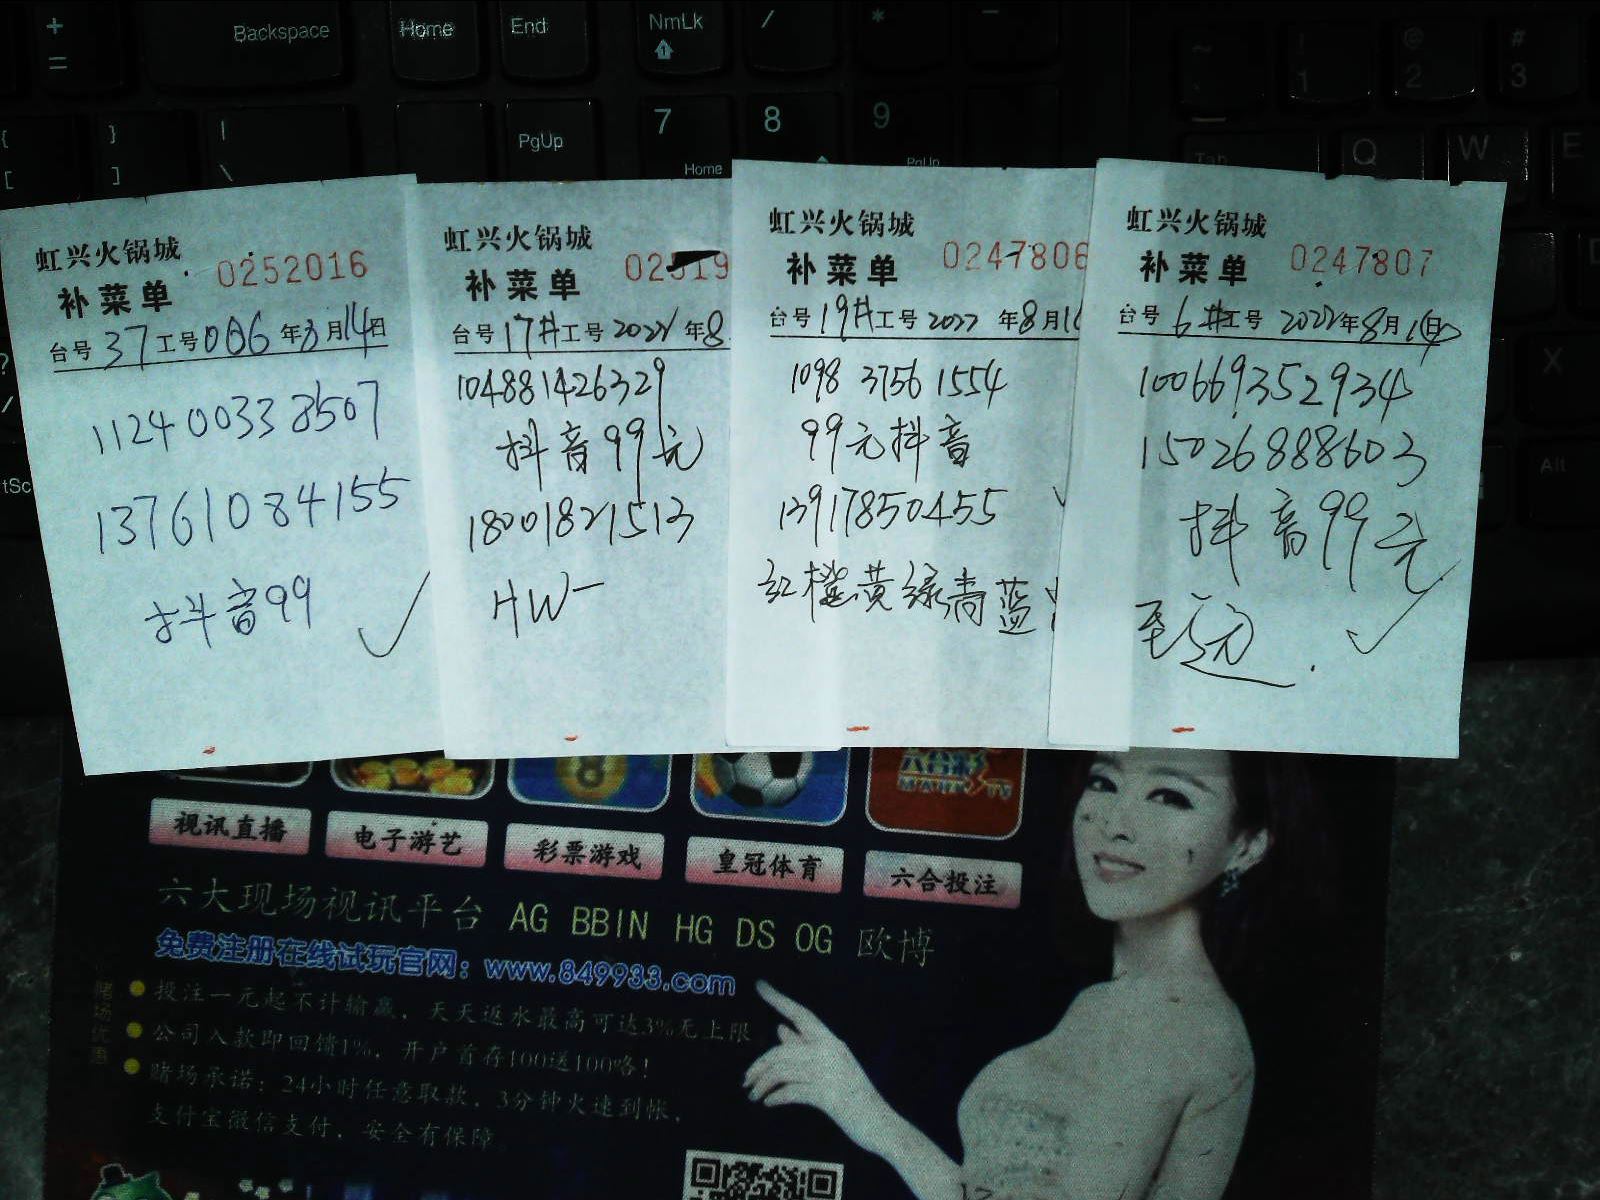 +
=
Backspace
Home
End
NmLk
/
*
-
~
!
1
@
2
#
3
{
[
}
]
|
\
PgUp
7
Home
8
9
PgUp
Tab
Q
W
E
X
Alt
虹兴火锅城
补菜单
0252016
台号 37 工号 006 年8月14日
112400338507
13761084155
抖音99
虹兴火锅城
补菜单
台号 17井 工号 2022 年8
104881426329
抖音99元
18001821513
HW一
虹兴火锅城
补菜单
0247806
台号 19井 工号 2022 年8月1
1098 3756 1554
99元抖音
13917850455
红橙黄绿青蓝
虹兴火锅城
补菜单
0247807
台号 6井 工号 2022年8月
100669352934
15026888603
抖音99元
视讯直播
电子游艺
彩票游戏
皇冠体育
六合投注
六大现场视讯平台 AG BBIN HG DS OG 欧博
免费注册在线试玩官网：www.849933.com
赌场优惠
投注一元起不计输赢，天天返水最高可达3%无上限
公司入款即回馈1%，开户首存100送100咯！
赌场承诺：24小时任意取款，3分钟火速到帐，
支付宝微信支付，安全有保障